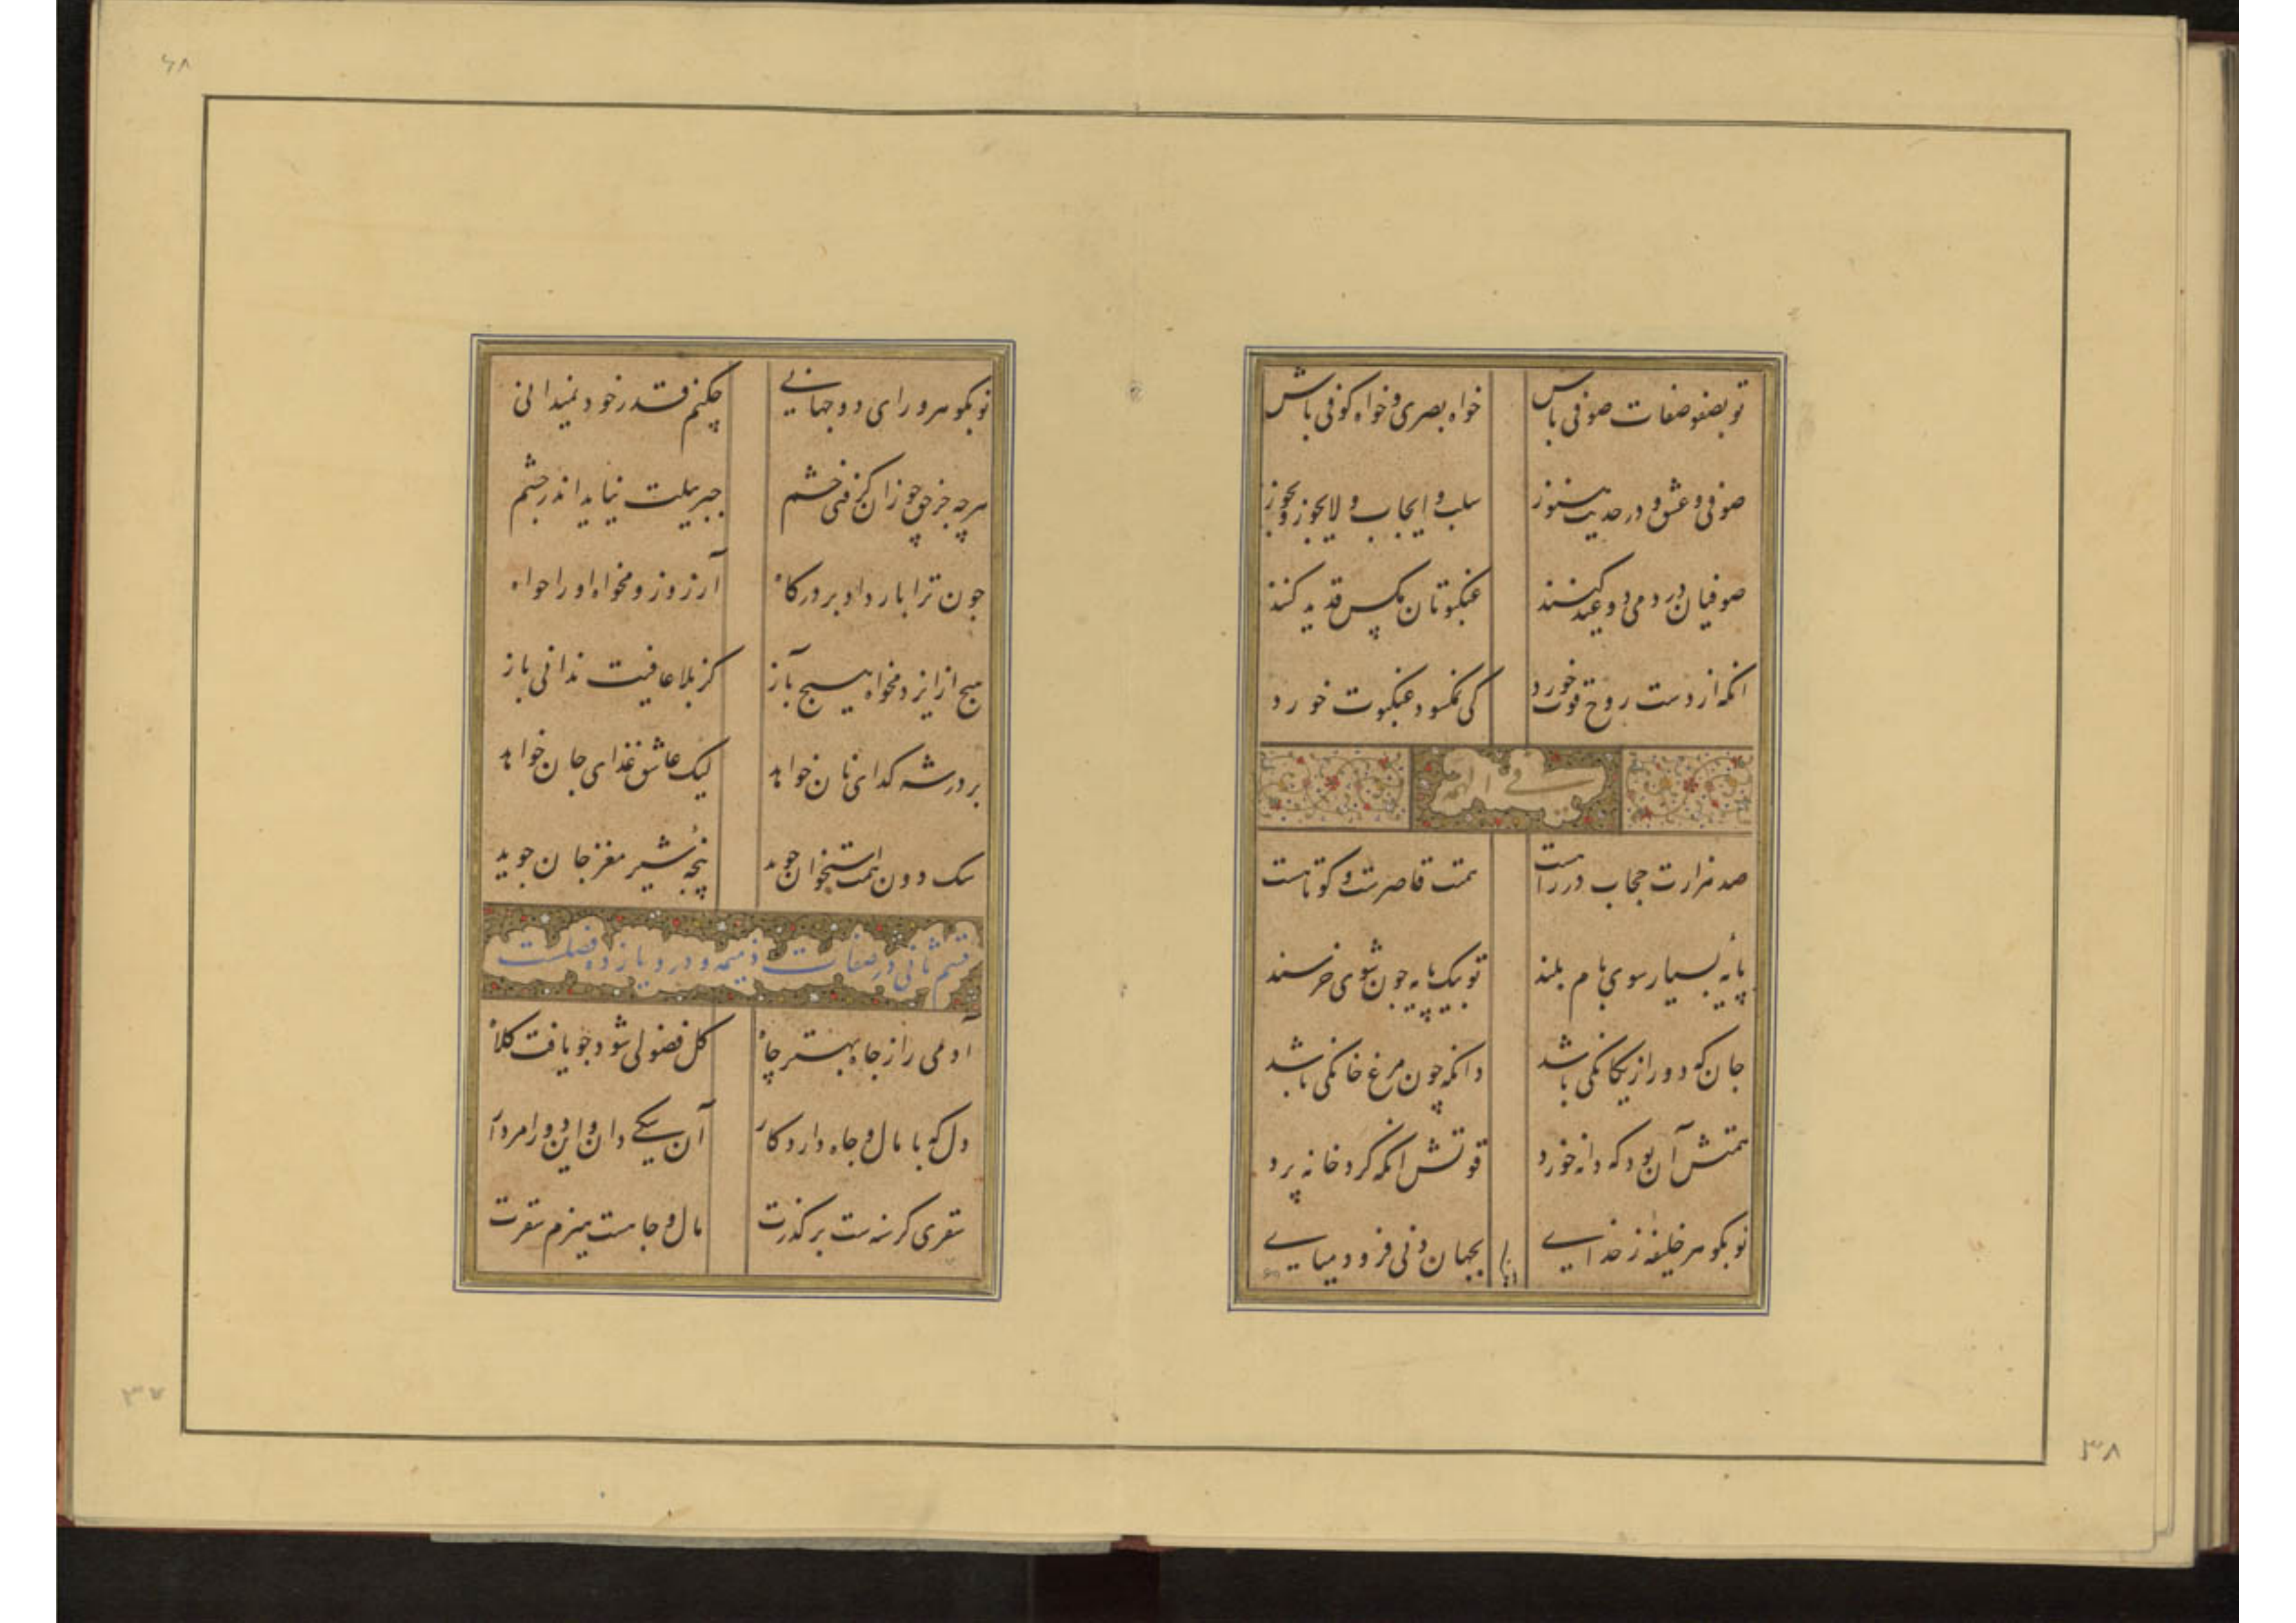 تو بصفو صفات صوفی باش خواه بصری و خواه کوفی باش
صوفی و عشق و در حدیث هنوز سلب و ایجاب و لایجوز و یجوز
صوفیان در دمی دو عید کنند عنکبوتان مکس قدید کنند
انکه از دست روح قوت خورد کی نمکسود عنکبوت خورد
فی الهمه
صد هزارت حجاب در راهست همتت قاصرست و کوتاهست
پایه بسیار سوی بام بلند تو بیک پایه چون شوی خرسند
جان که دور از یکانکی باشد دانکه چون مرغ خانکی باشد
همتش آن بود که دانه خورد قوتش انکه کرد خانه پرد
تو بکوهر خلیفه ز خدایی بجهان دنی فرود میایی
تو بکوهر ورای دو جهانی چکنم قدر خود نمیدانی
هرچه جز حق چو زان کرفتی خشم جبریلت نیاید اندر چشم
چون ترا بار داد بر درکاه آرزو زو مخواه او را خواه
هیچ از ایزد مخواه هیچ آز کز بلا عافیت ندانی باز
بر در شه کدای نان خواهد لیک عاشق غذای جان خواهد
سک دون همت استخوان جوید پنجه شیر مغز جان جوید
قسم ثانی در صفات ذمیمه و درو یازده فصلست
آدمی را ز جاه بهتر چاه کل فضولی شود چو یافت کلاه
دل که با مال و جاه دارد کار آن یکی دان و این دو را مردار
سقری کرسنه ست بر کذرت مال و جاهست هیزم سقرت
۳۸